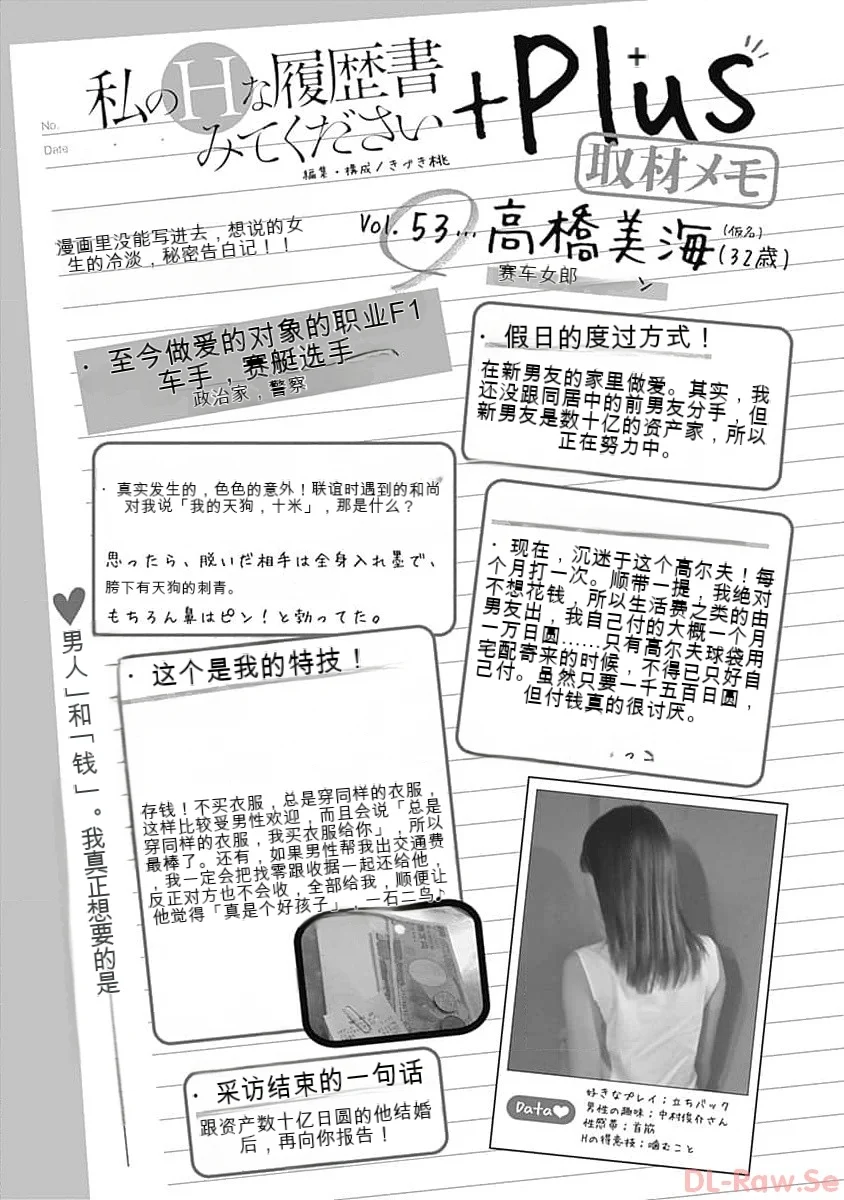 No.
Date
私のHな履歴書
みてください
+Plus
編集・構成/きづき桃
取材メモ
漫画里没能写进去，想说的女
生的冷淡，秘密告白记！！
Vol. 53... 高橋美海(仮名)(32歳)
赛车女郎
・至今做爱的对象的职业F1
车手，赛艇选手
政治家，警察
・假日的度过方式！
在新男友的家里做爱。其实，我
还没跟同居中的前男友分手，但
新男友是数十亿的资产家，所以
正在努力中。
・真实发生的，色色的意外！联谊时遇到的和尚
对我说「我的天狗，十米」，那是什么？
思ったら、脱いだ相手は全身入れ墨で、
胯下有天狗的刺青。
もちろん鼻はピン！と勃ってた。
・现在，沉迷于这个高尔夫！每
个月打一次。顺带一提，我绝对
不想花钱，所以生活费之类的由
男友出，我自己付的大概一个月
一万日圆……只有高尔夫球袋用
宅配寄来的时候，不得已只好自
己付。虽然只要一千五百日圆，
但付钱真的很讨厌。
男人」和「钱」。我真正想要的是
・这个是我的特技！
存钱！不买衣服，总是穿同样的衣服，
这样比较受男性欢迎，而且会说「总是
穿同样的衣服，我买衣服给你」，所以
最棒了。还有，如果男性帮我出交通费
，我一定会把找零跟收据一起还给他，
反正对方也不会收，全部给我，顺便让
他觉得「真是个好孩子」，一石二鸟♪
・采访结束的一句话
跟资产数十亿日圆的他结婚
后，再向你报告！
Data♥
好きなプレイ；立ちバック
男性の趣味；中村俊介さん
性感帯；首筋
Hの得意技；噛むこと
DL-Raw.Se